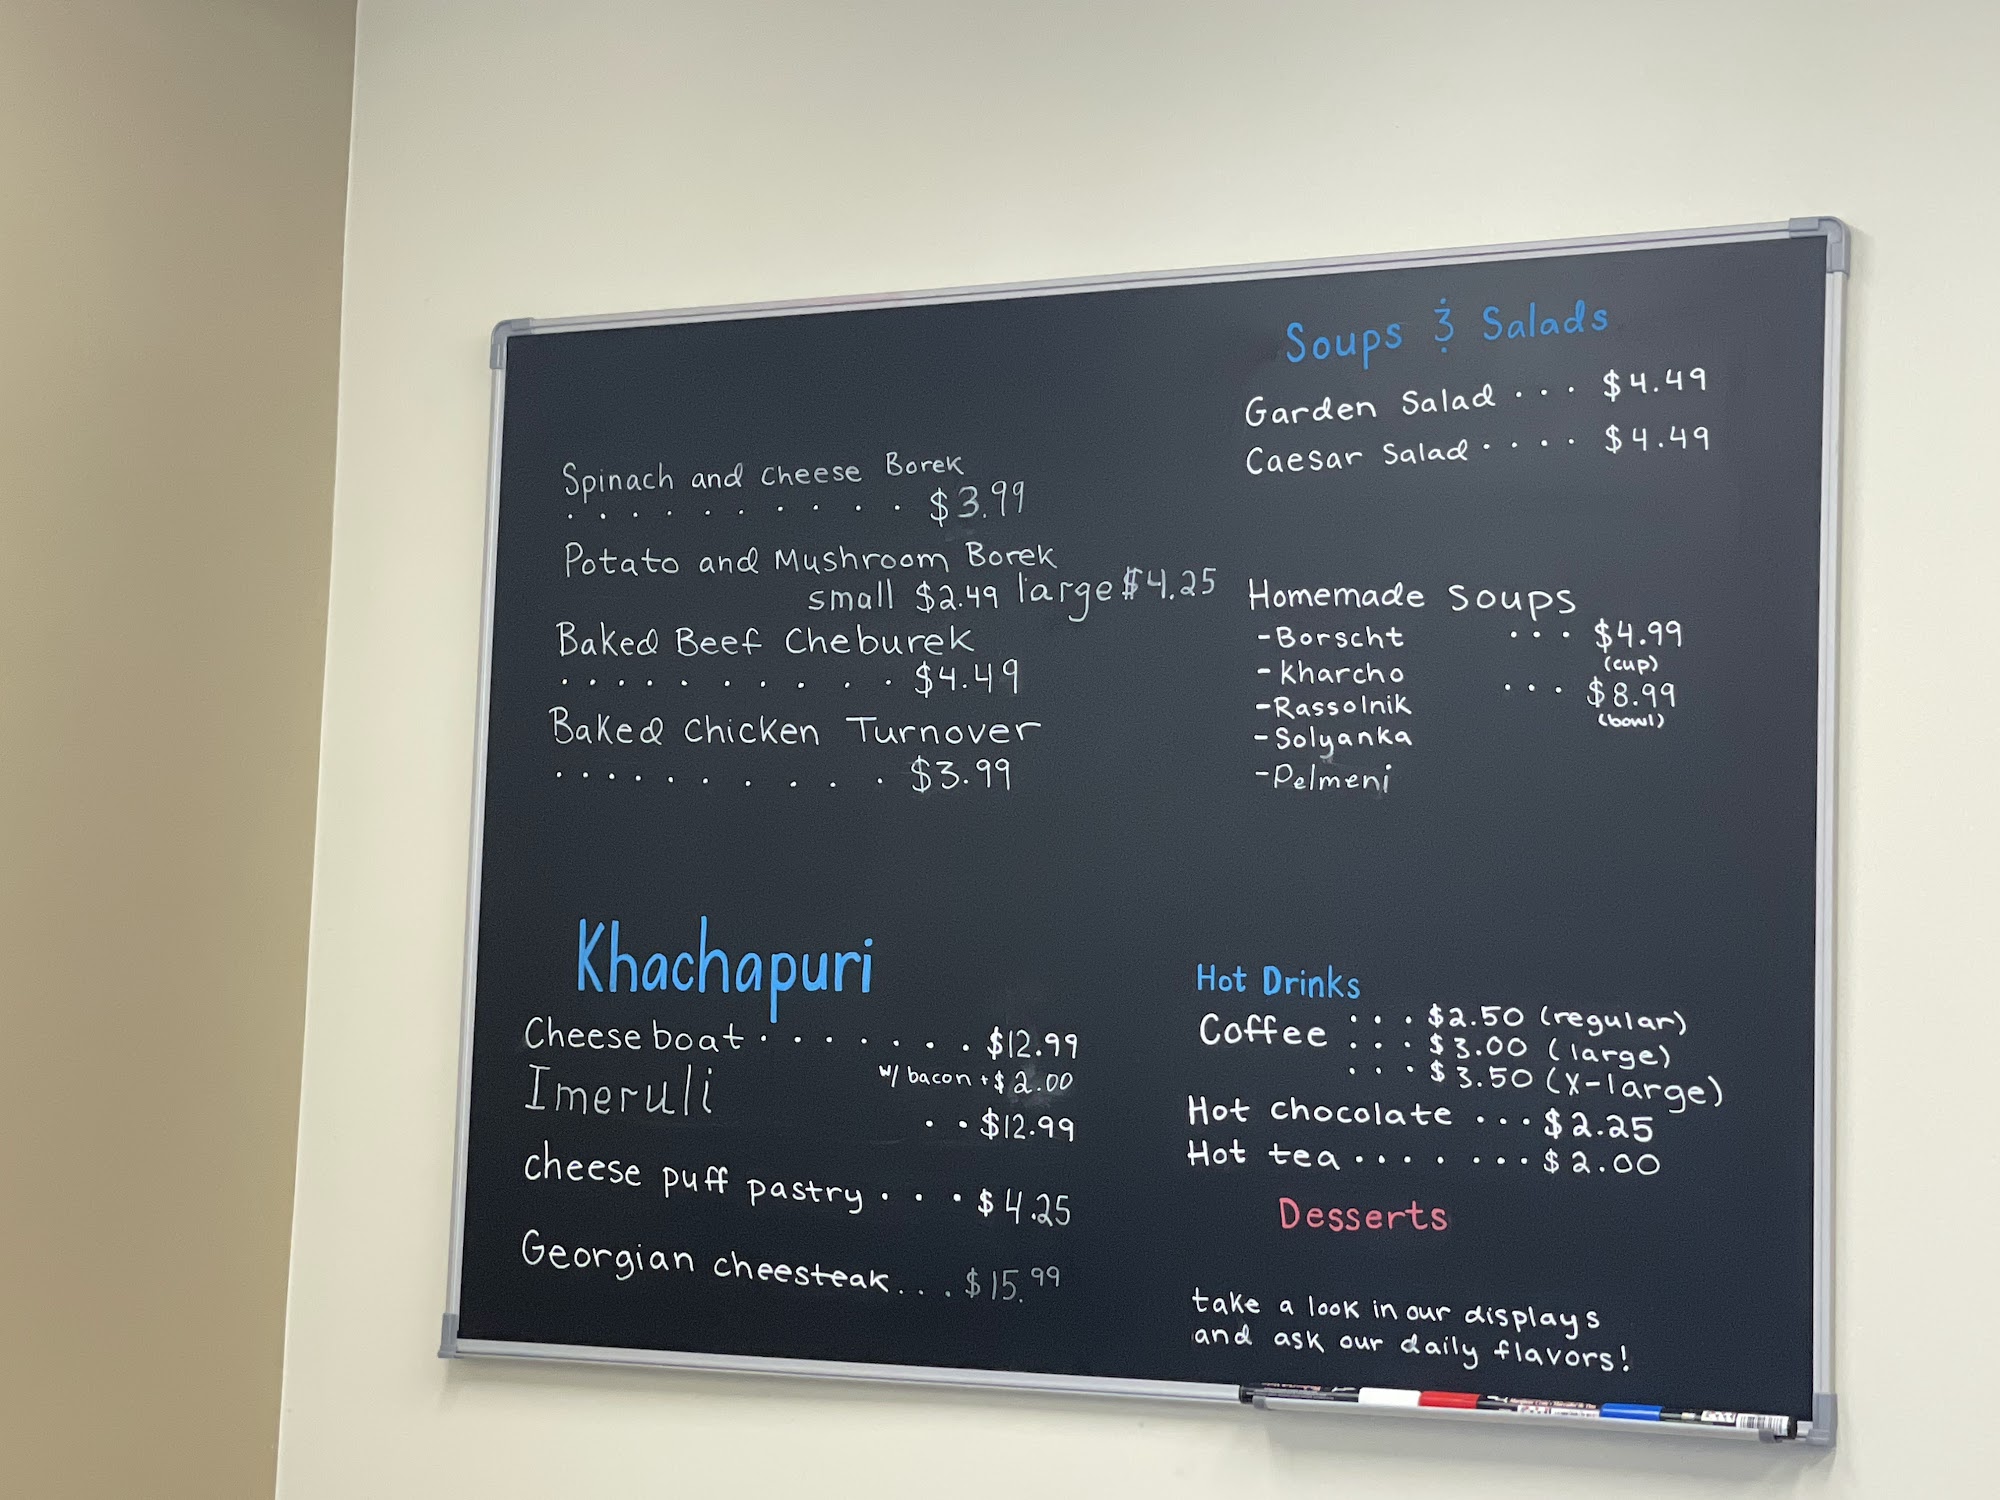 Spinach and cheese Borek
. . . . . . . . . . $3.99
Potato and Mushroom Borek
small $2.49 large $4.25
Baked Beef Cheburek
. . . . . . . . . . $4.49
Baked Chicken Turnover
. . . . . . . . . . $3.99
Khachapuri
Cheese boat . . . . . . . $12.99
w/ bacon + $2.00
Imeruli
. . $12.99
cheese puff pastry . . . $4.25
Georgian cheesteak . . . $15.99
Soups & Salads
Garden Salad . . . $4.49
Caesar Salad . . . . $4.49
Homemade Soups
-Borscht . . . $4.99
(cup)
-Kharcho
-Rassolnik . . . $8.99
(bowl)
-Solyanka
-Pelmeni
Hot Drinks
Coffee . . . $2.50 (regular)
. . . $3.00 (large)
. . . $3.50 (x-large)
Hot chocolate . . . $2.25
Hot tea . . . . . . . $2.00
Desserts
take a look in our displays
and ask our daily flavors!